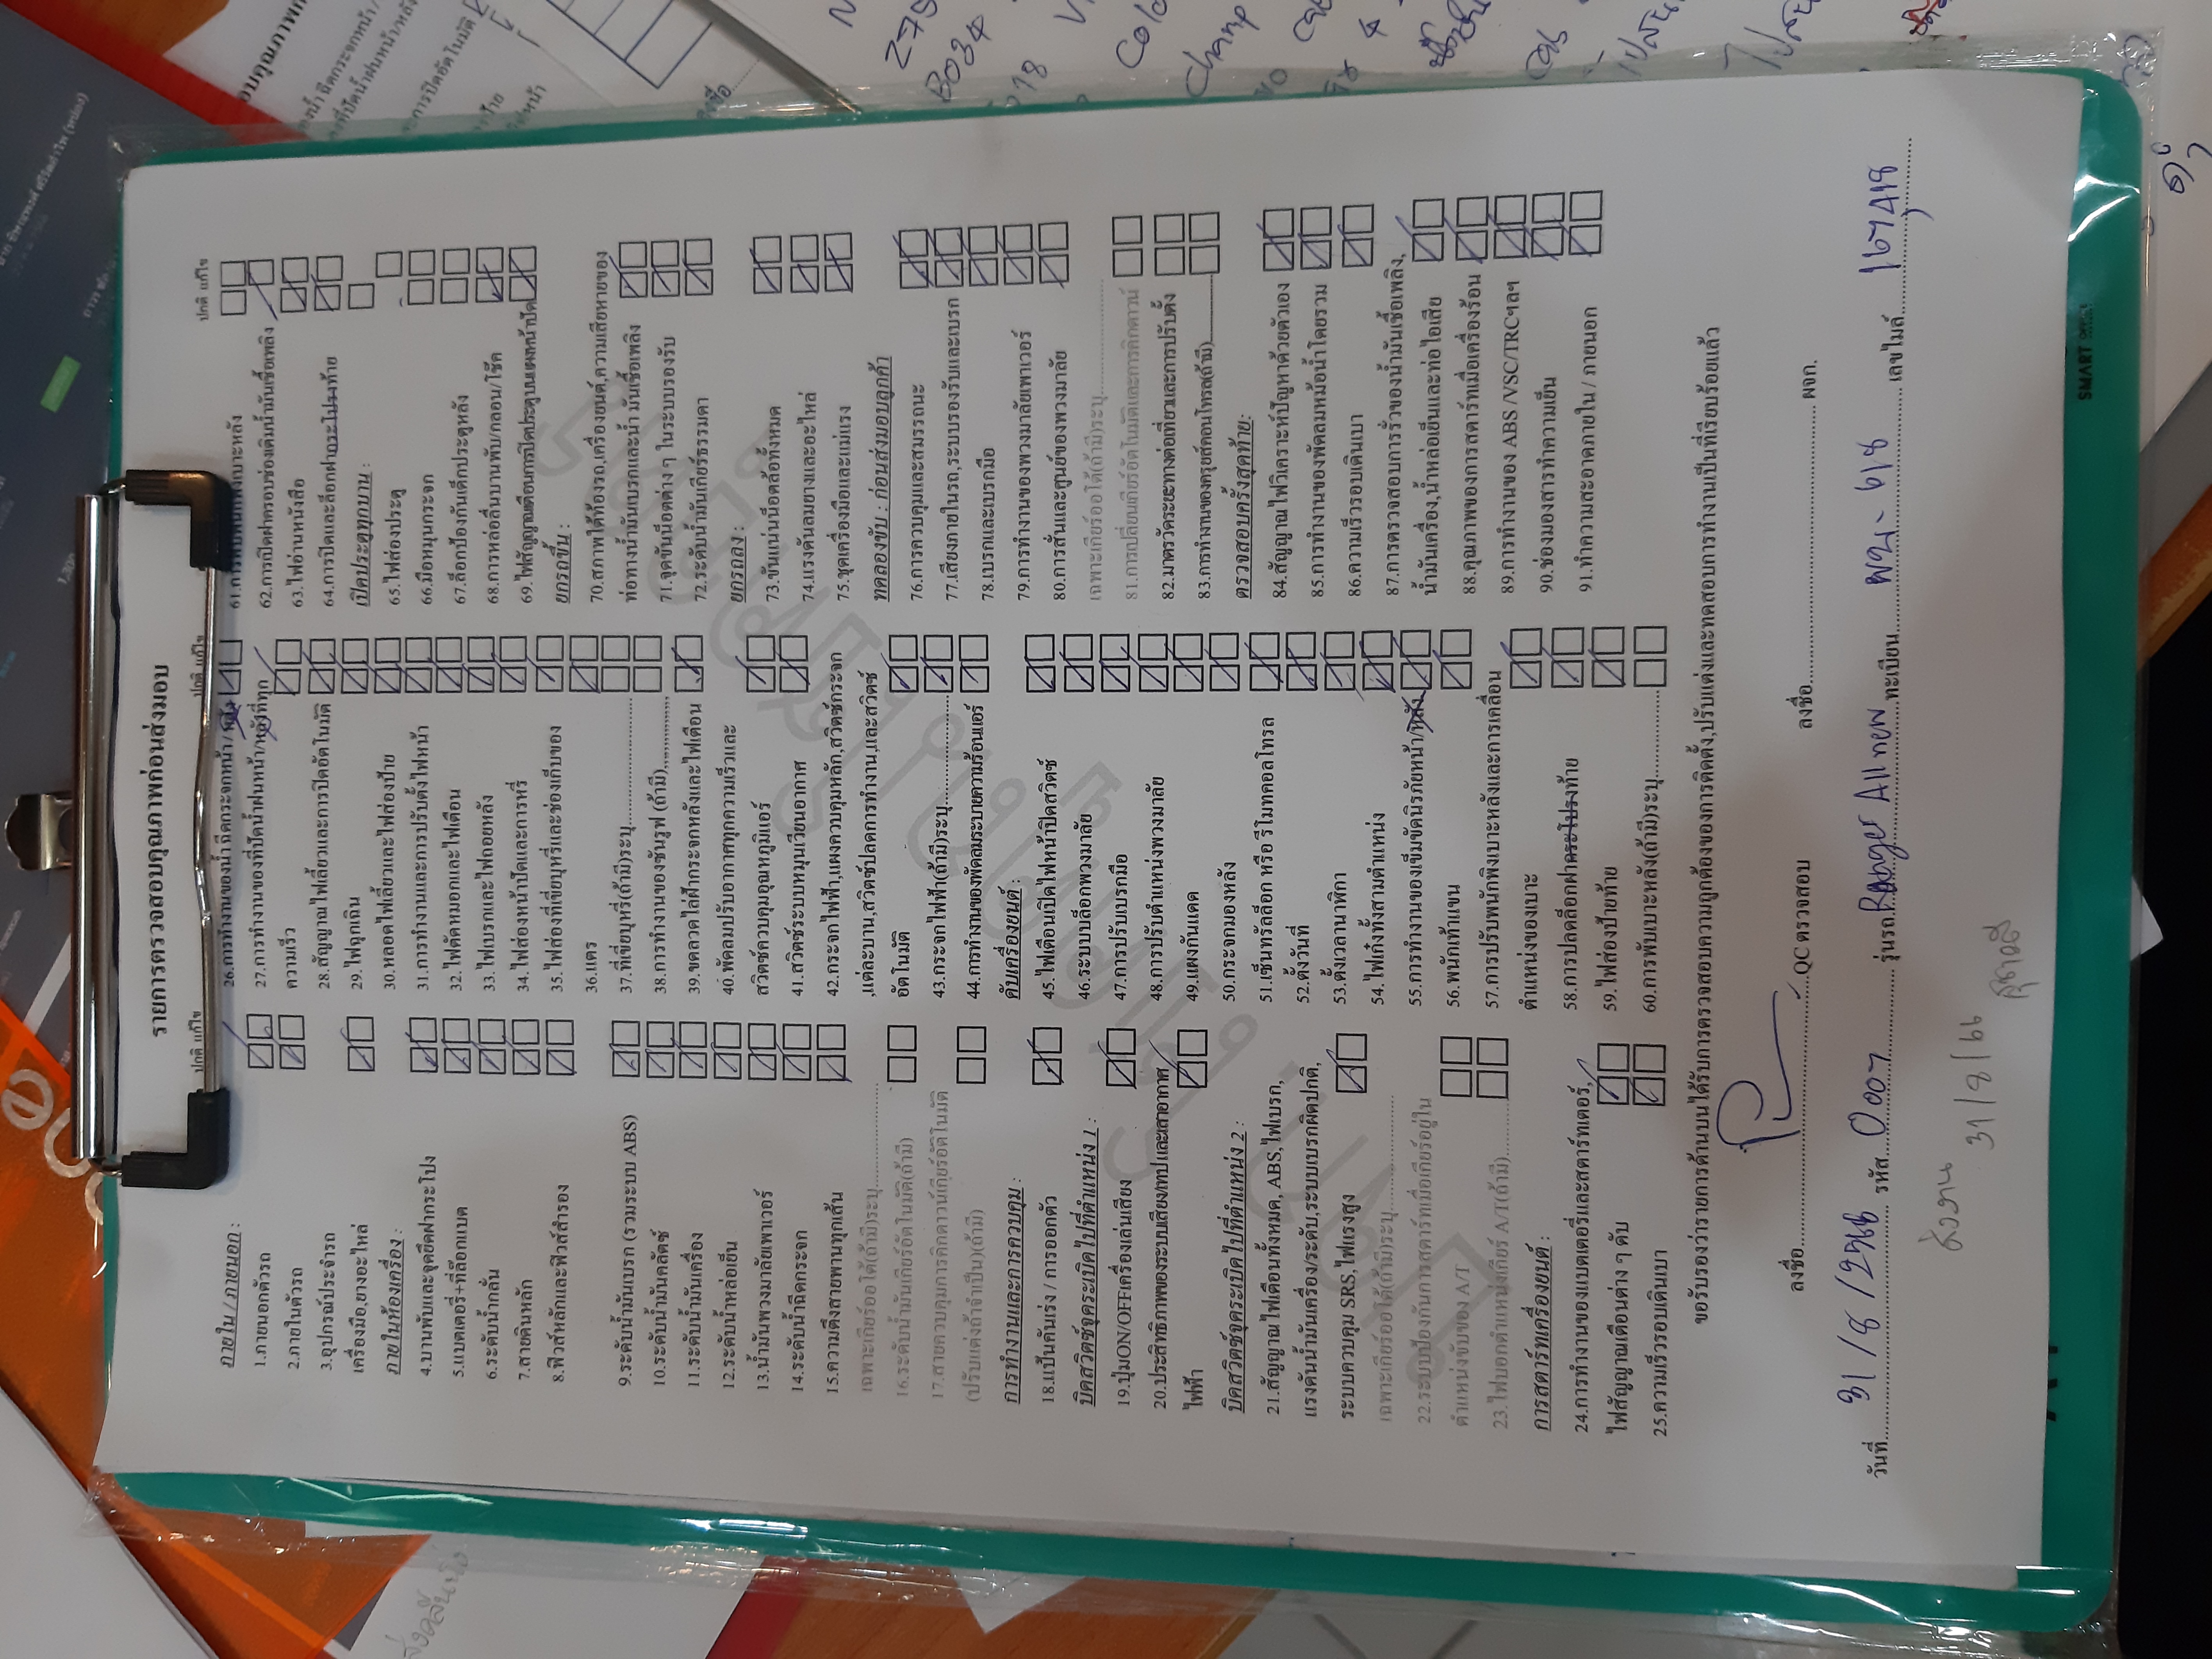 รายการตรวจสอบคุณภาพก่อนส่งมอบ
ปกติ แก้ไข
ภายใน / ภายนอก :
1.ภายนอกตัวรถ
2.ภายในตัวรถ
3.อุปกรณ์ประจำรถ
เครื่องมือ,ยางอะไหล่
ภายในห้องเครื่อง :
4.บานพับและจุดยึดฝากระโปง
5.แบตเตอรี่+ที่ล็อกแบต
6.ระดับน้ำกลั่น
7.สายดินหลัก
8.ฟิวส์หลักและฟิวส์สำรอง
9.ระดับน้ำมันเบรก (รวมระบบ ABS)
10.ระดับน้ำมันคลัตช์
11.ระดับน้ำมันเครื่อง
12.ระดับน้ำหล่อเย็น
13.น้ำมันพวงมาลัยเพาเวอร์
14.ระดับน้ำฉีดกระจก
15.ความตึงสายพานทุกเส้น
เฉพาะเกียร์ออโต้(ถ้ามี)ระบุ
16.ระดับน้ำมันเกียร์อัตโนมัติ(ถ้ามี)
17.สายควบคุมการคิกดาวน์เกียร์อัตโนมัติ
(ปรับแต่งถ้าจำเป็น)(ถ้ามี)
การทำงานและการควบคุม :
18.แป้นคันเร่ง / การออกตัว
บิดสวิตช์จุดระเบิดไปที่ตำแหน่ง 1 :
19.ปุ่มON/OFFเครื่องเล่นเสียง
20.ประสิทธิภาพของระบบเสียง/เทป และเสาอากาศ
ไฟฟ้า
บิดสวิตช์จุดระเบิดไปที่ตำแหน่ง 2 :
21.สัญญาณไฟเตือนทั้งหมด, ABS,ไฟเบรก,
แรงดันน้ำมันเครื่อง/ระดับ,ระบบเบรกผิดปกติ,
ระบบควบคุม SRS,ไฟแรงสูง
เฉพาะเกียร์ออโต้(ถ้ามี)ระบุ
22.ระบบป้องกันการสตาร์ทเมื่อเกียร์อยู่ใน
ตำแหน่งขับของ A/T
23.ไฟบอกตำแหน่งเกียร์ A/T(ถ้ามี)
การสตาร์ทเครื่องยนต์ :
24.การทำงานของแบตเตอรี่และสตาร์ทเตอร์,
ไฟสัญญาณเตือนต่าง ๆ ดับ
25.ความเร็วรอบเดินเบา
ปกติ แก้ไข
26.การทำงานของน้ำ ฉีดกระจกหน้า / หลัง
27.การทำงานของที่ปัดน้ำฝนหน้า/หลังที่ทุก
ความเร็ว
28.สัญญาณไฟเลี้ยวและการปิดอัตโนมัติ
29.ไฟฉุกเฉิน
30.หลอดไฟเลี้ยวและไฟส่องป้าย
31.การทำงานและการปรับตั้งไฟหน้า
32.ไฟตัดหมอกและไฟเตือน
33.ไฟเบรกและไฟถอยหลัง
34.ไฟส่องหน้าปัดและการหรี่
35.ไฟส่องที่เขี่ยบุหรี่และช่องเก็บของ
36.แตร
37.ที่เขี่ยบุหรี่(ถ้ามี)ระบุ
38.การทำงานของซันรูฟ (ถ้ามี)
39.ขดลวดไล่ฝ้ากระจกหลังและไฟเตือน
40.พัดลมปรับอากาศทุกความเร็วและ
สวิตช์ควบคุมอุณหภูมิแอร์
41.สวิตช์ระบบหมุนเวียนอากาศ
42.กระจกไฟฟ้า,แผงควบคุมหลัก,สวิตช์กระจก
,แต่ละบาน,สวิตช์ปลดการทำงาน,และสวิตช์
อัตโนมัติ
43.กระจกไฟฟ้า(ถ้ามี)ระบุ
44.การทำงานของพัดลมระบายความร้อนแอร์
ดับเครื่องยนต์ :
45.ไฟเตือนเปิดไฟหน้าปิดสวิตช์
46.ระบบบล็อกพวงมาลัย
47.การปรับเบรกมือ
48.การปรับตำแหน่งพวงมาลัย
49.แผงกันแดด
50.กระจกมองหลัง
51.เซ็นทรัลล็อก หรือ รีโมทคอลโทรล
52.ตั้งวันที่
53.ตั้งเวลานาฬิกา
54.ไฟเก๋งทั้งสามตำแหน่ง
55.การทำงานของเข็มขัดนิรภัยหน้า/หลัง
56.พนักเท้าแขน
57.การปรับพนักพิงเบาะหลังและการเคลื่อน
ตำแหน่งของเบาะ
58.การปลดล็อกฝากระโปรงท้าย
59.ไฟส่องป้ายท้าย
60.การพับเบาะหลัง(ถ้ามี)ระบุ
ปกติ แก้ไข
62.การเปิดฝาครอบช่องเติมน้ำมันเชื้อเพลิง
63.ไฟอ่านหนังสือ
64.การปิดและล็อกฝากระโปรงท้าย
เปิดประตูทุกบาน :
65.ไฟส่องประตู
66.มือหมุนกระจก
67.ล็อกป้องกันเด็กประตูหลัง
68.การหล่อลื่นบานพับ/กลอน/โช๊ค
69.ไฟสัญญาณเตือนการปิดประตูบนแผงหน้าปัด
ยกรถขึ้น :
70.สภาพใต้ท้องรถ,เครื่องยนต์,ความเสียหายของ
ท่อทางน้ำมันเบรกและน้ำ มันเชื้อเพลิง
71.จุดขันน็อตต่าง ๆ ในระบบรองรับ
72.ระดับน้ำมันเกียร์ธรรมดา
ยกรถลง :
73.ขันแน่นน็อตล้อทั้งหมด
74.แรงดันลมยางและอะไหล่
75.ชุดเครื่องมือและแม่แรง
ทดลองขับ : ก่อนส่งมอบลูกค้า
76.การควบคุมและสมรรถนะ
77.เสียงภายในรถ,ระบบรองรับและเบรก
78.เบรกและเบรกมือ
79.การทำงานของพวงมาลัยเพาเวอร์
80.การสั่นและศูนย์ของพวงมาลัย
เฉพาะเกียร์ออโต้(ถ้ามี)ระบุ
81.การเปลี่ยนเกียร์อัตโนมัติและการคิกดาวน์
82.มาตรวัดระยะทางต่อเที่ยวและการปรับตั้ง
83.การทำงานของครุยส์คอนโทรล(ถ้ามี)
ตรวจสอบครั้งสุดท้าย:
84.สัญญาณไฟวิเคราะห์ปัญหาด้วยตัวเอง
85.การทำงานของพัดลมหม้อน้ำโดยรวม
86.ความเร็วรอบเดินเบา
87.การตรวจสอบการรั่วของน้ำมันเชื้อเพลิง,
น้ำมันเครื่อง,น้ำหล่อเย็นและท่อไอเสีย
88.คุณภาพของการสตาร์ทเมื่อเครื่องร้อน
89.การทำงานของ ABS /VSC/TRCฯลฯ
90.ช่องมองสารทำความเย็น
91.ทำความสะอาดภายใน / ภายนอก
ขอรับรองว่ารายการด้านบนได้รับการตรวจสอบความถูกต้องของการติดตั้ง,ปรับแต่งและทดสอบการทำงานเป็นที่เรียบร้อยแล้ว
ลงชื่อ QC ตรวจสอบ ลงชื่อ ผจก.
วันที่ 31/8/2566 รหัส 0007 รุ่นรถ Ranger All new ทะเบียน 618 เลขไมล์ 167,418
31/8/66
SMART